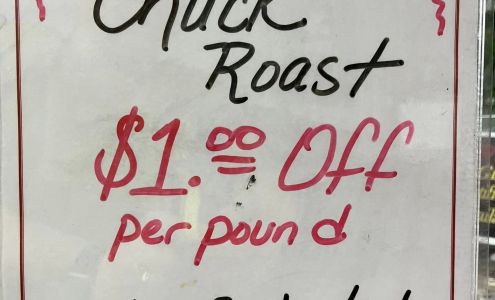 Chuck
Roast
$1.00 Off
per pound